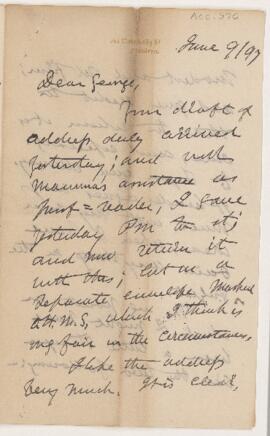 Acc. 570
June 9/97
Dear George,
Your draft of
address duly arrived
yesterday; and with
Mamma's assistance as
proof=reader, I gave
yesterday PM to it;
and now return it
with this; but in a
separate envelope marked
O.H.M.S, which I think is
fair in the circumstances.
I like the address
very much. It is clear,